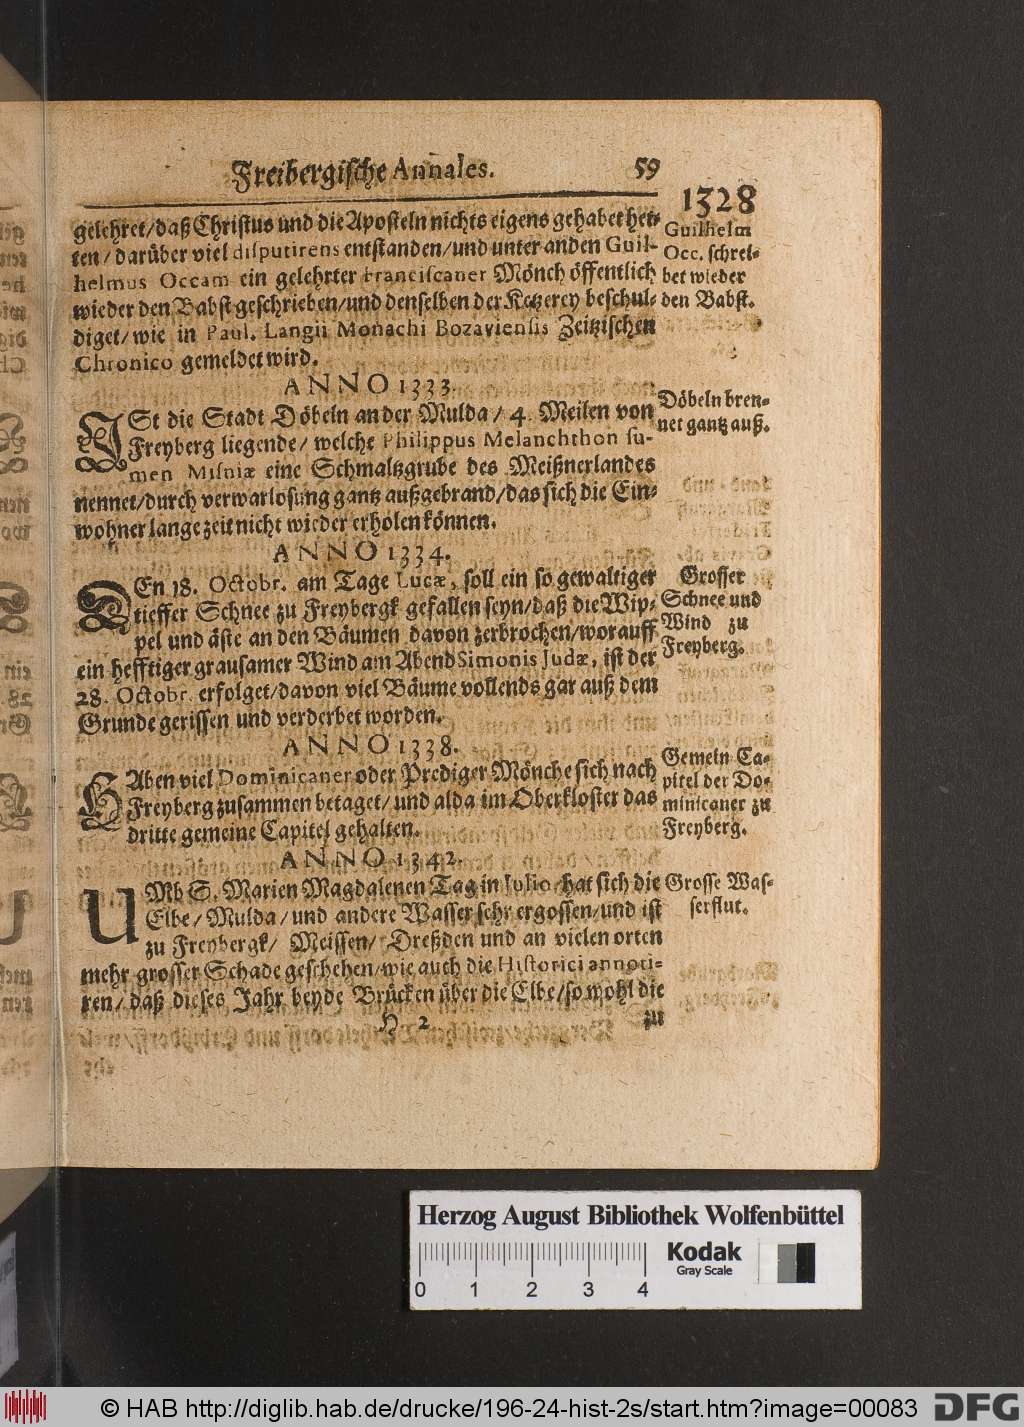 Freibergische Annales. 59
1328
gelehret/daß Christus und die Aposteln nichts eigens gehabet het-
ten/darüber viel disputirens entstanden/und unter anden Guil-
helmus Occam ein gelehrter Franciscaner Mönch öffentlich
wieder den Babst geschrieben/und denselben der Ketzerey beschul-
diget/wie in Paul. Langii Monachi Bozaviensis Zeitzischen
Chronico gemeldet wird.
Guilhelm
Occ. schrei-
bet wieder
den Babst.
ANNO 1333.
ISt die Stadt Döbeln an der Mulda/4. Meilen von
Freyberg liegende/welche Philippus Melanchthon su-
men Misniæ eine Schmaltzgrube des Meißnerlandes
nennet/durch verwarlosung gantz außgebrand/das sich die Ein-
wohner lange zeit nicht wieder erholen können.
Döbeln bren-
net gantz auß.
ANNO 1334.
DEn 18. Octobr. am Tage Lucæ, soll ein so gewaltiger
tieffer Schnee zu Freybergk gefallen seyn/daß die Wip-
pel und äste an den Bäumen davon zerbrochen/worauff
ein hefftiger grausamer Wind am Abend Simonis Judæ, ist der
28. Octobr. erfolget/davon viel Bäume vollends gar auß dem
Grunde gerissen und verderbet worden.
Grosser
Schnee und
Wind zu
Freyberg.
ANNO 1338.
HAben viel Dominicaner oder Prediger Mönche sich nach
Freyberg zusammen betaget/und alda im Oberkloster das
dritte gemeine Capitel gehalten.
Gemein Ca-
pitel der Do-
minicaner zu
Freyberg.
ANNO 1342.
UMb S. Marien Magdalenen Tag in Julio hat sich die
Elbe/Mulda/und andere Wasser sehr ergossen/und ist
zu Freybergk/Meissen/Dreßden und an vielen orten
mehr grosser Schade geschehen/wie auch die Historici annoti-
ren/daß dieses Jahr beyde Brücken über die Elbe/so wohl die
Grosse Was-
serflut.
H 2 zu
Herzog August Bibliothek Wolfenbüttel
0 1 2 3 4
Kodak
Gray Scale
© HAB http://diglib.hab.de/drucke/196-24-hist-2s/start.htm?image=00083
DFG